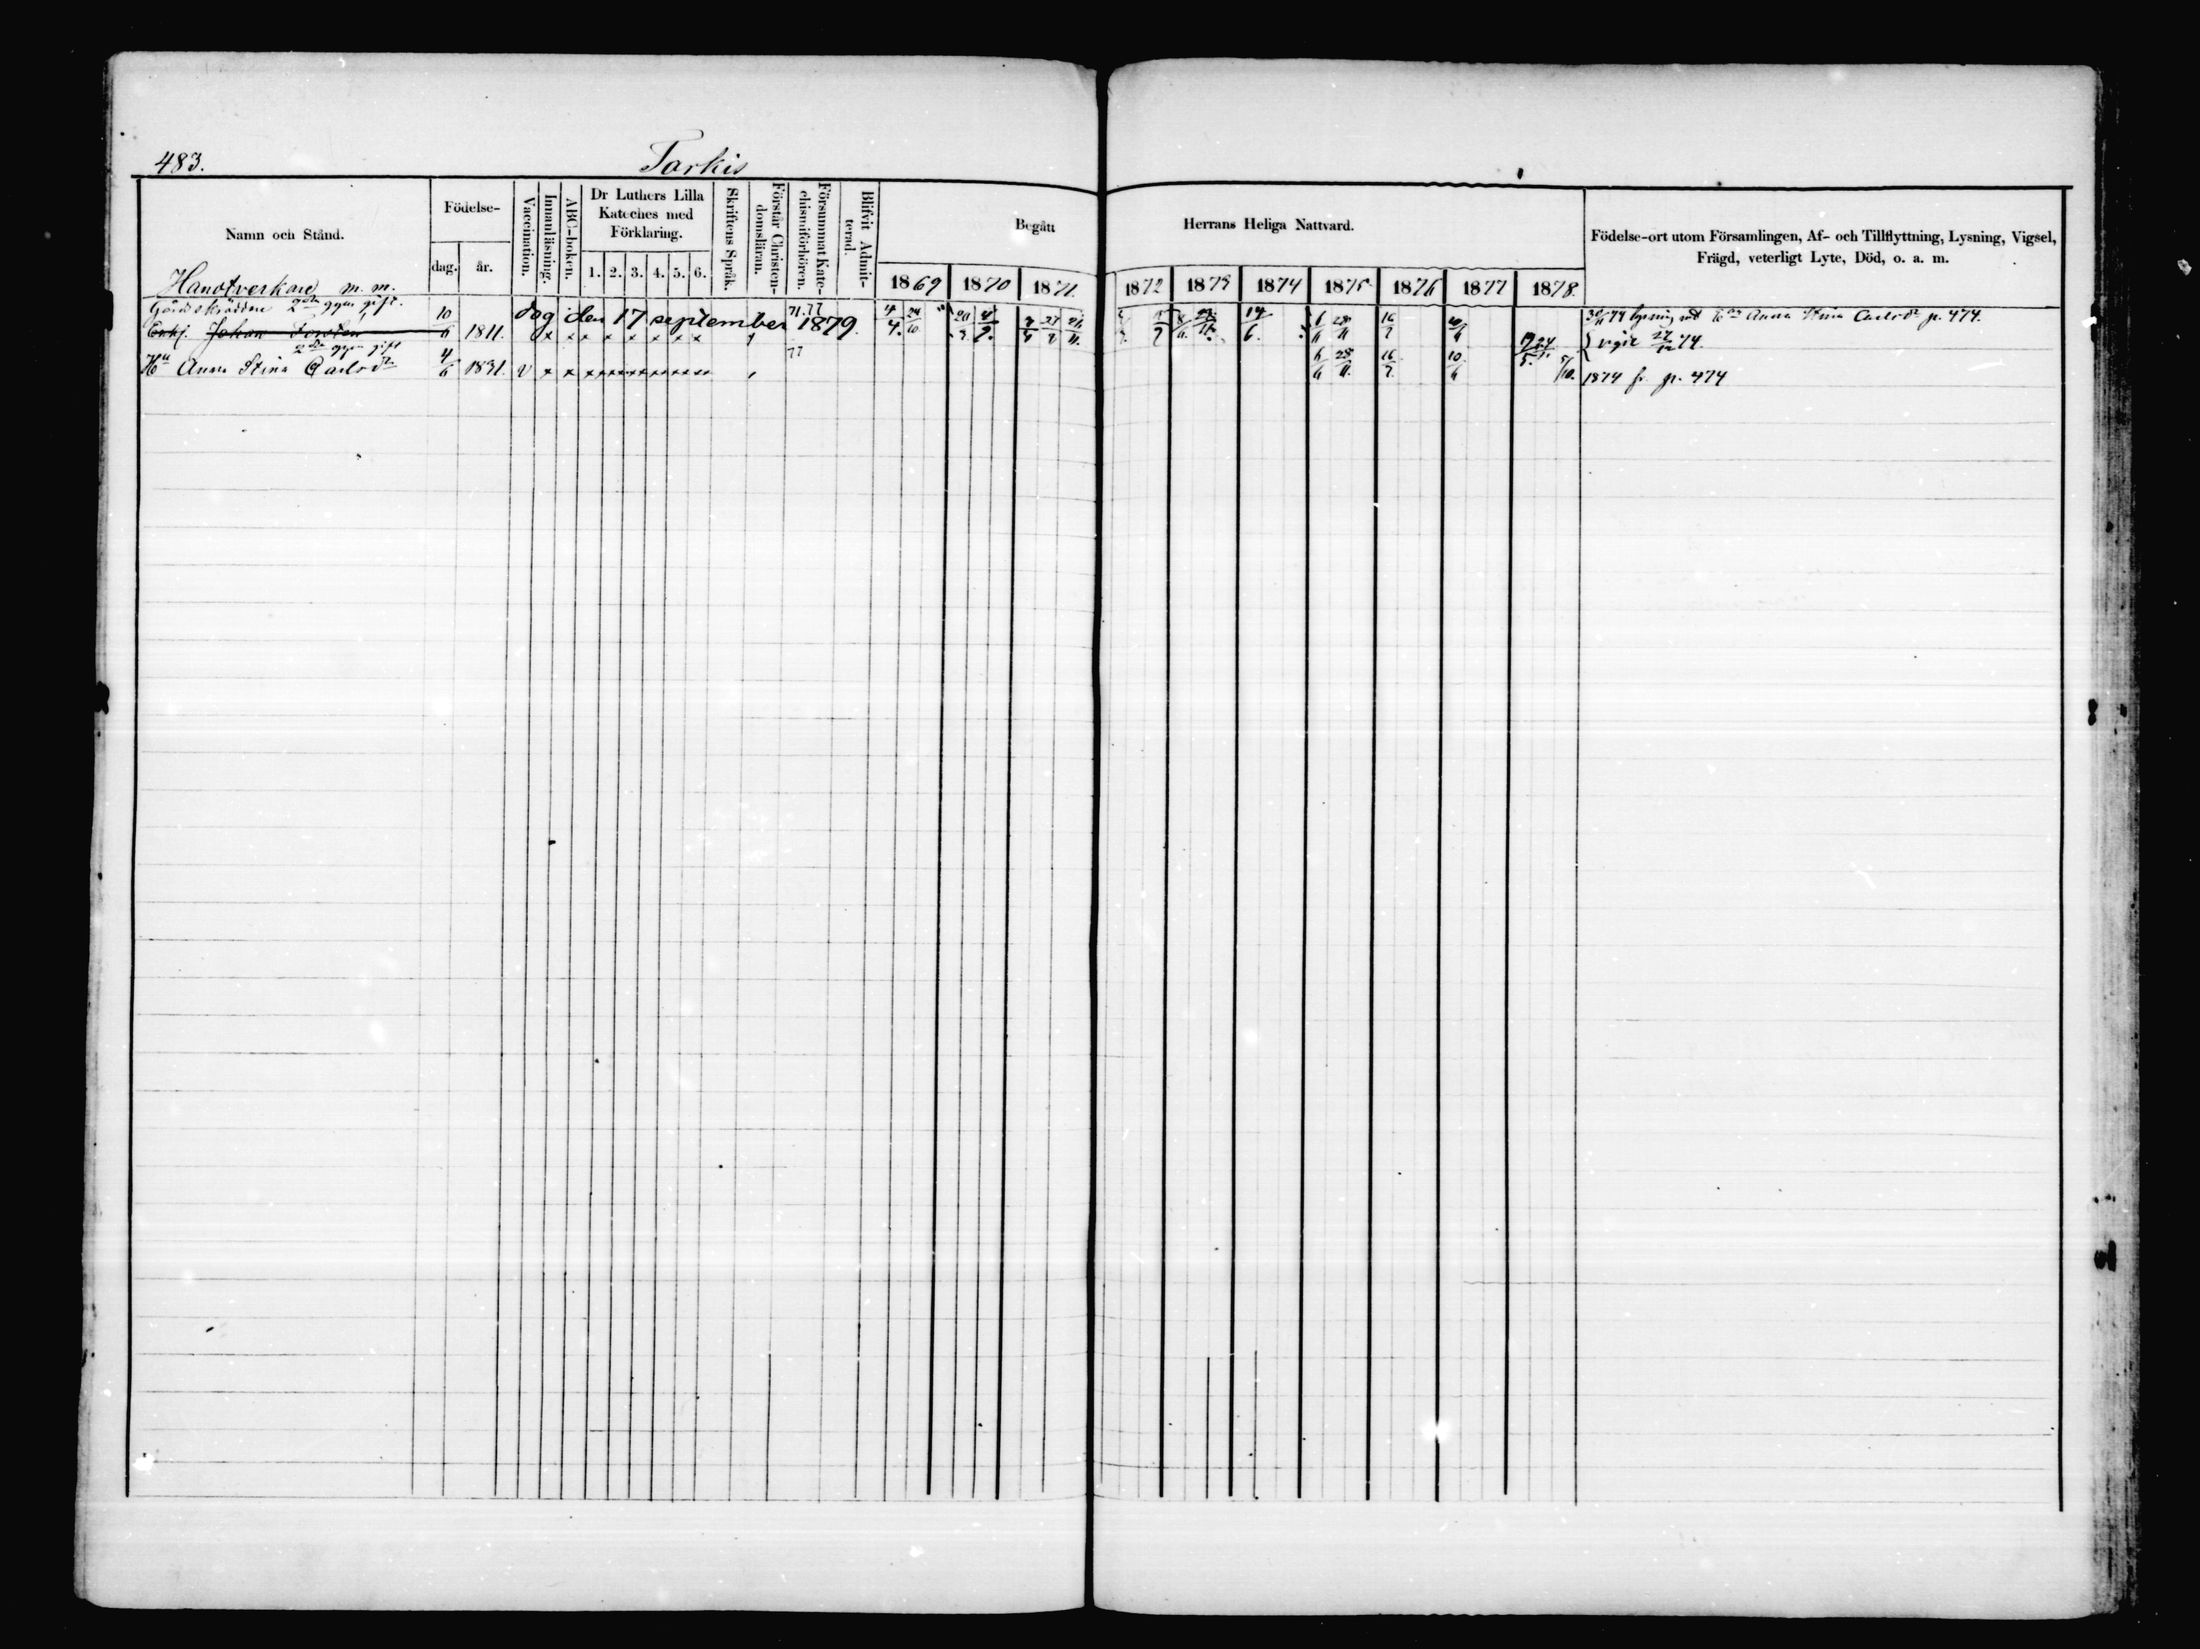 483.
Tarkis
Namn och Stånd.
Födelse-
dag. år.
Vaccination.
Innanläsning.
ABC-boken.
Dr Luthers Lilla
Kateches med
Förklaring.
1. 2. 3. 4. 5. 6.
Skriftens Språk.
Förstår Christen-
domsläran.
Försummat Kate-
chismiförhören.
Blifvit Admit-
terad.
Begått Herrans Heliga Nattvard.
1869 1870 1871. 1872 1873 1874 1875 1876 1877 1878.
Födelse-ort utom Församlingen, Af- och Tillflyttning, Lysning, Vigsel,
Frägd, veterligt Lyte, Död, o. a. m.
Handtverkare m. m.
Gårdsskräddne 2dra ggen gift.
Enkj. Johan 10/6 1811. dog den 17 september 1879. 71.77
30/11 74 lysning med Anna Stina Carlsdr p. 474.
vigde 27/12 74.
2dra ggen gift
Hu Anna Stina Carlsdr 4/6 1831. v 77
1874 fr. p. 474